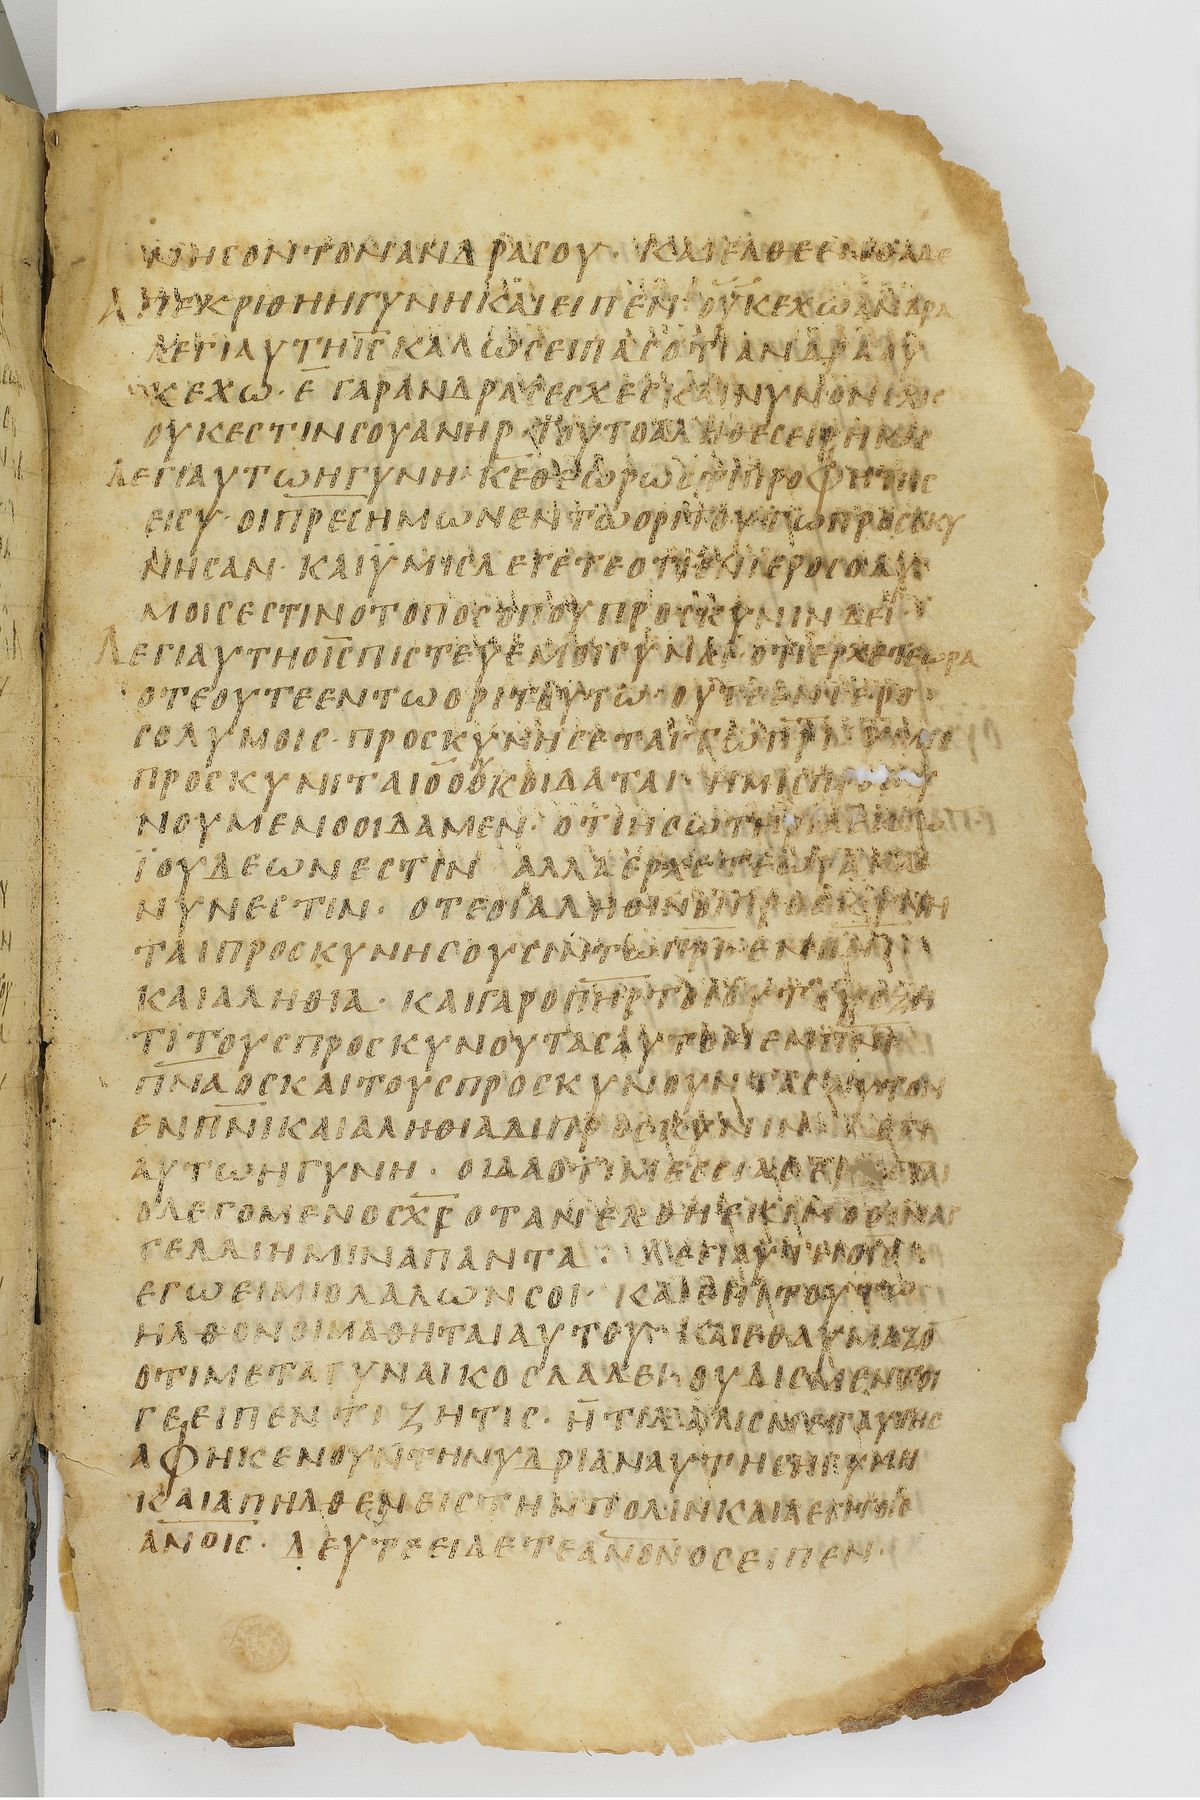 ΝΗϹΟΝΤΟΝΑΝΔΡΑϹΟΥ · ΚΑΙΕΛΘΕΕΝΘΑΔΕ
ΑΠΕΚΡΙΘΗΗΓΥΝΗΚΑΙΕΙΠΕΝ ΟΥΚΕΧΩΑΝΔΡΑ
ΛΕΓΙΑΥΤΗΙ̅Ϲ̅ΚΑΛΩϹΕΙΠΑϹΟΤΙΑΝΔΡΑΟΥ
ΚΕΧΩ · Ε̅ ΓΑΡΑΝΔΡΑϹΕϹΧΕϹΚΑΙΝΥΝΟΝΕΧΙϹ
ΟΥΚΕϹΤΙΝϹΟΥΑΝΗΡ ΤΟΥΤΟΑΛΗΘΕϹΕΙΡΗΚΑϹ
ΛΕΓΙΑΥΤΩΗΓΥΝΗ · Κ̅Ε̅ΘΕΩΡΩΟΤΙΠΡΟΦΗΤΗϹ
ΕΙϹΥ · ΟΙΠ̅Ρ̅Ε̅Ϲ̅ΗΜΩΝΕΝΤΩΟΡΙΤΟΥΤΩΠΡΟϹΕΚΥ
ΝΗϹΑΝ · ΚΑΙΫΜΙϹΛΕΓΕΤΕΟΤΙΕΝΙΕΡΟϹΟΛΥ
ΜΟΙϹΕϹΤΙΝΟΤΟΠΟϹΟΠΟΥΠΡΟϹΚΥΝΙΝΔΕΙ
ΛΕΓΙΑΥΤΗΟΙ̅Ϲ̅ΠΙϹΤΕΥΕΜΟΙΓΥΝΑΙ ΟΤΙΕΡΧΕΤΕΩΡΑ
ΟΤΕΟΥΤΕΕΝΤΩΟΡΙΤΟΥΤΩ ΟΥΤΕΕΝΙΕΡΟ
ϹΟΛΥΜΟΙϹ · ΠΡΟϹΚΥΝΗϹΕΤΑΙΤΩΠ̅Ρ̅Ι̅
ΠΡΟϹΚΥΝΙΤΑΙΟΟΥΚΟΙΔΑΤΑΙ · ΗΜΙϹΠΡΟϹΚΥ
ΝΟΥΜΕΝΟΟΙΔΑΜΕΝ · ΟΤΙΗϹΩΤΗΡΙΑ
ΪΟΥΔΕΩΝΕϹΤΙΝ ΑΛΛΑΕΡΧΕΤΕΩΡΑΚΑΙ
ΝΥΝΕϹΤΙΝ · ΟΤΕΟΙΑΛΗΘΙΝΟΙΠΡΟϹΚΥΝΗ
ΤΑΙΠΡΟϹΚΥΝΗϹΟΥϹΙΝΤΩΠ̅Ρ̅Ι̅ΕΝΠ̅Ν̅Ι̅
ΚΑΙΑΛΗΘΙΑ · ΚΑΙΓΑΡΟΠ̅Η̅Ρ̅ΤΟΙΟΥΤΟΥϹΖΗ
ΤΙΤΟΥϹΠΡΟϹΚΥΝΟΥΤΑϹΑΥΤΟΝΕΝΠ̅Ν̅Ι̅
Π̅Ν̅Α̅ΟΘ̅Ϲ̅ΚΑΙΤΟΥϹΠΡΟϹΚΥΝΟΥΝΤΑϹΑΥΤΟΝ
ΕΝΠ̅Ν̅Ι̅ΚΑΙΑΛΗΘΙΑΔΙΠΡΟϹΚΥΝΙΝ ΛΕΓΙ
ΑΥΤΩΗΓΥΝΗ · ΟΙΔΑΟΤΙΜΕϹϹΙΑϹ
ΟΛΕΓΟΜΕΝΟϹΧ̅Ϲ̅ ΟΤΑΝΕΛΘΗΕΚΙΝΟϹΑΝΑΓ
ΓΕΛΛΙΗΜΙΝΑΠΑΝΤΑ · ΛΕΓΙΑΥΤΗΟΙ̅Ϲ̅ ·
ΕΓΩΕΙΜΙΟΛΑΛΩΝϹΟΙ · ΚΑΙΕΠΙΤΟΥΤΩ
ΗΛΘΟΝΟΙΜΑΘΗΤΑΙΑΥΤΟΥ ΚΑΙΕΘΑΥΜΑΖΟ̅
ΟΤΙΜΕΤΑΓΥΝΑΙΚΟϹΛΑΛΕΙ · ΟΥΔΙϹΜΕΝΤΟΙ
ΓΕΕΙΠΕΝ ΤΙ ΖΗΤΙϹ · ΗΤΙΛΑΛΙϹΜΕΤΑΥΤΗϹ
ΑΦΗΚΕΝΟΥΝΤΗΝΥΔΡΙΑΝΑΥΤΗϹΗΓΥΝΗ
ΚΑΙΑΠΗΛΘΕΝΕΙϹΤΗΝΠΟΛΙΝΚΑΙΛΕΓΙΤΟΙϹ
Α̅Ν̅Ο̅Ι̅Ϲ̅ · ΔΕΥΤΕΕΙΔΕΤΕΑ̅Ν̅Ο̅Ν̅ΟϹΕΙΠΕΝ ·